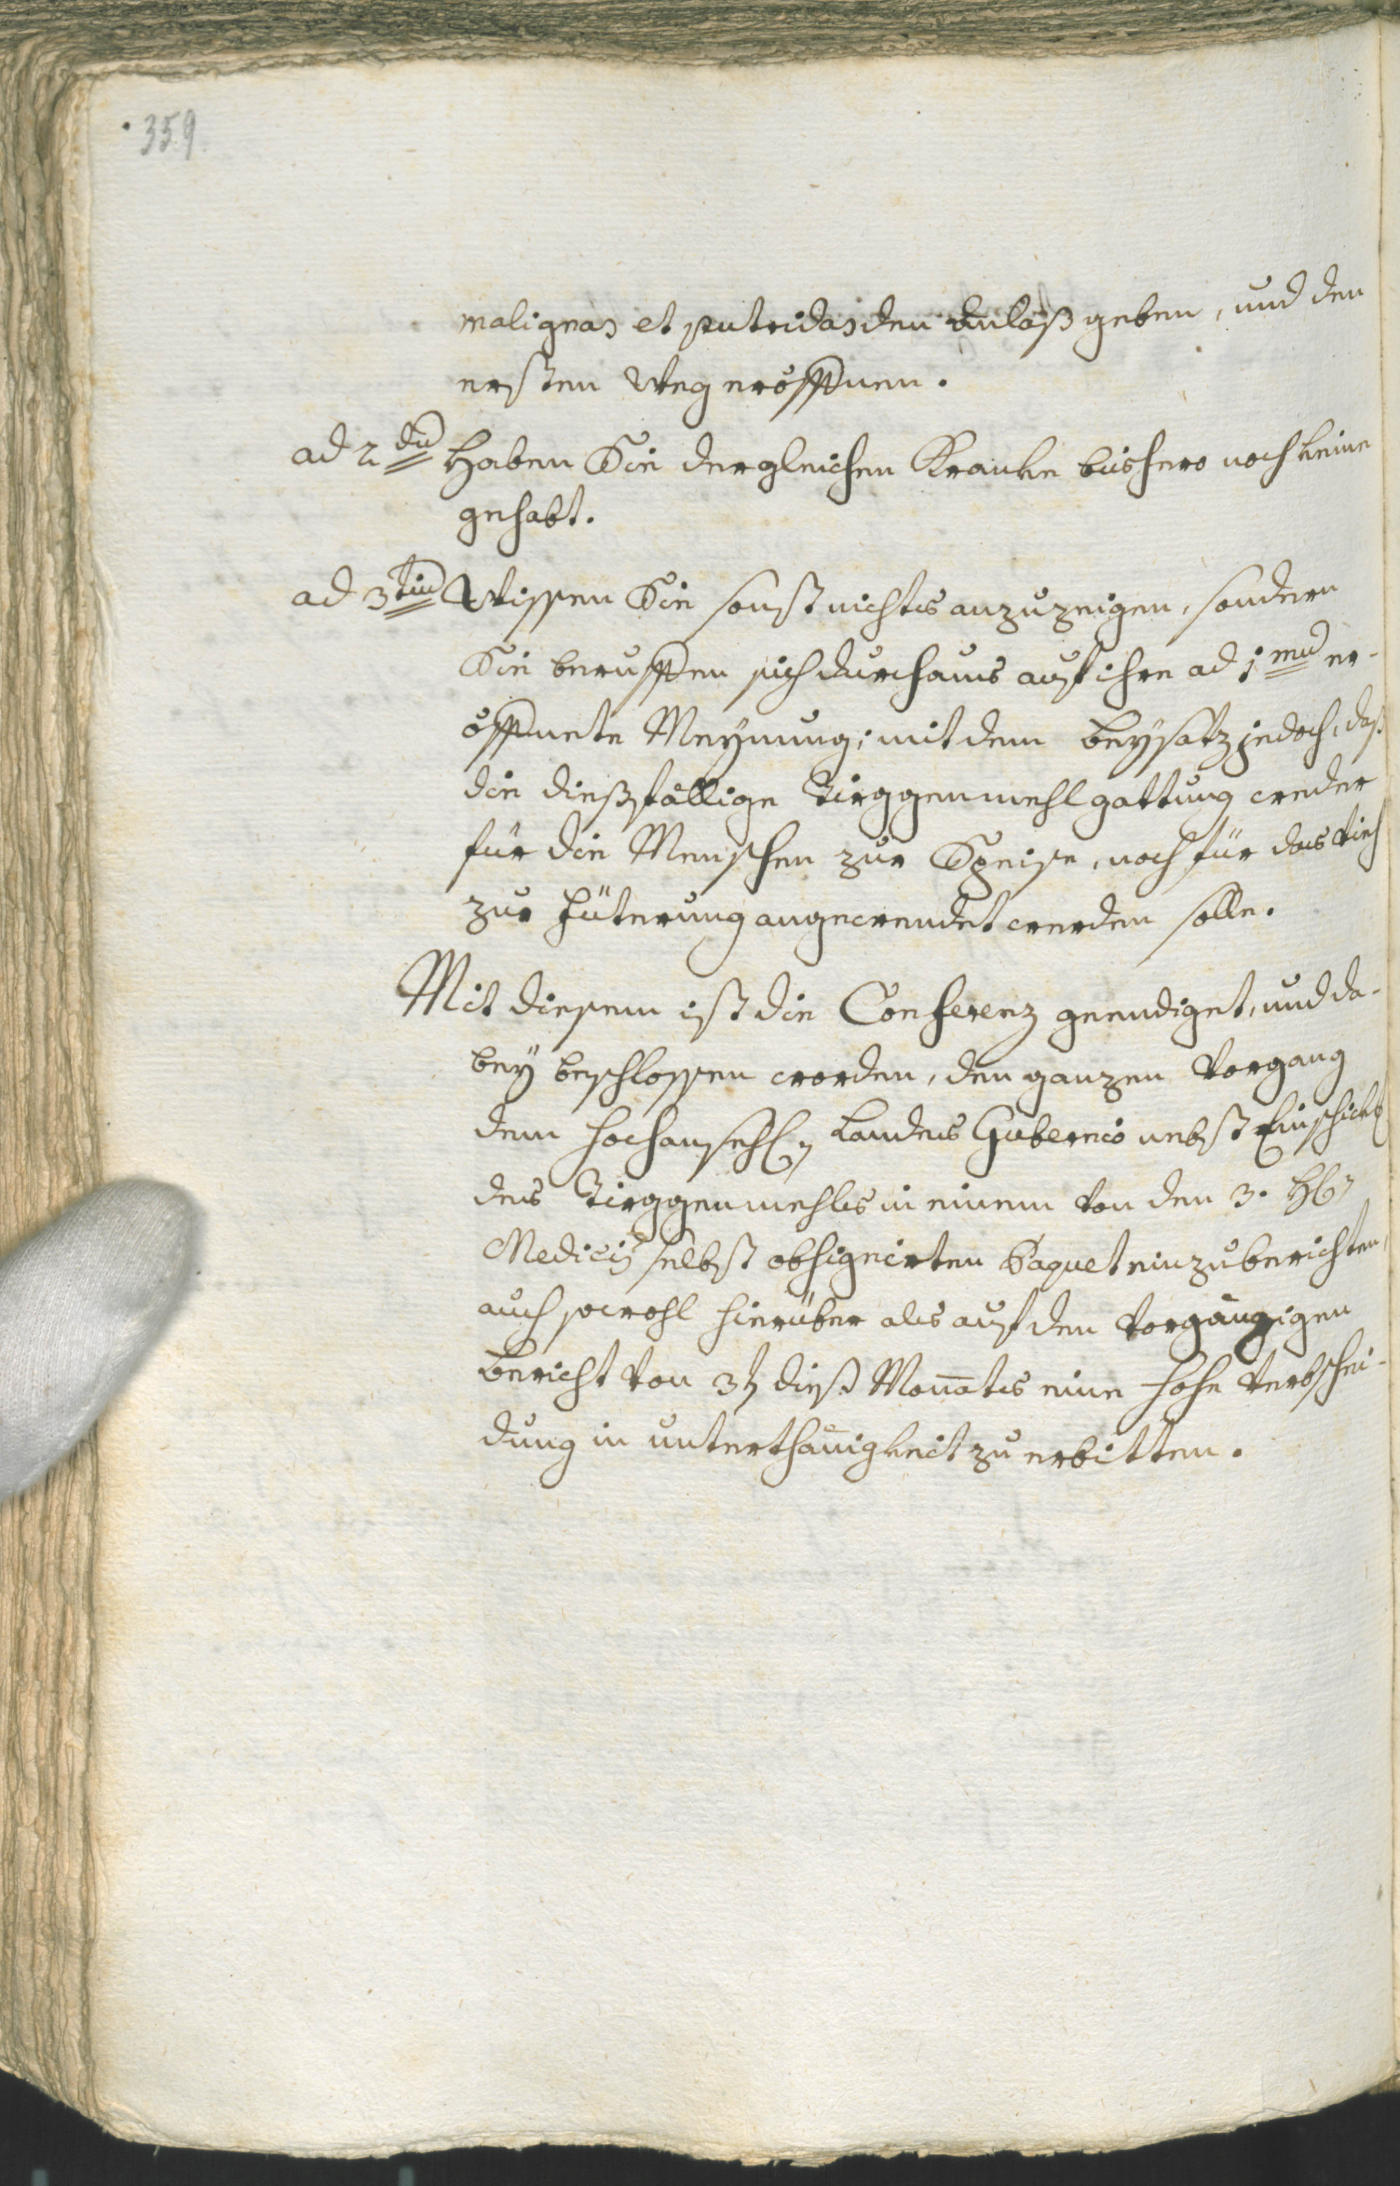 359
malignas et putridas den anlaß geben, und den
ersten Weeg eröffnen.
ad 2dũ Haben Sie dergleichen Kranke bishero noch keine
gehabt.
ad 3tiũ Wissen Sie sonst nichts anzuzeigen, sondern
Sie beruffen sich durchaus auf ihre ad 1mũ er-
öffnete Meynung; mit dem beysatz jedoch, daß
die dießfällige Tirggenmehlgattung weder
für die Menschen zur Speise, noch für das Vieh
zur Füterung angewendet werden solle.
Mit diesem ist die Conferenz geendiget, und da-
bey beschlossen worden, den ganzen Vorgang
dem hochansehl. Landes Gubernio nebst Einschick
des Tirggenmehls in einem von den 3. H
Medicis selbst obsignirten Paquet einzuberichten,
auch sowohl hierüber als auf den vorgängigen
bericht von 3t dieß Monats eine hohe Verbschei-
dung in unterthänigkeit zu erbitten.